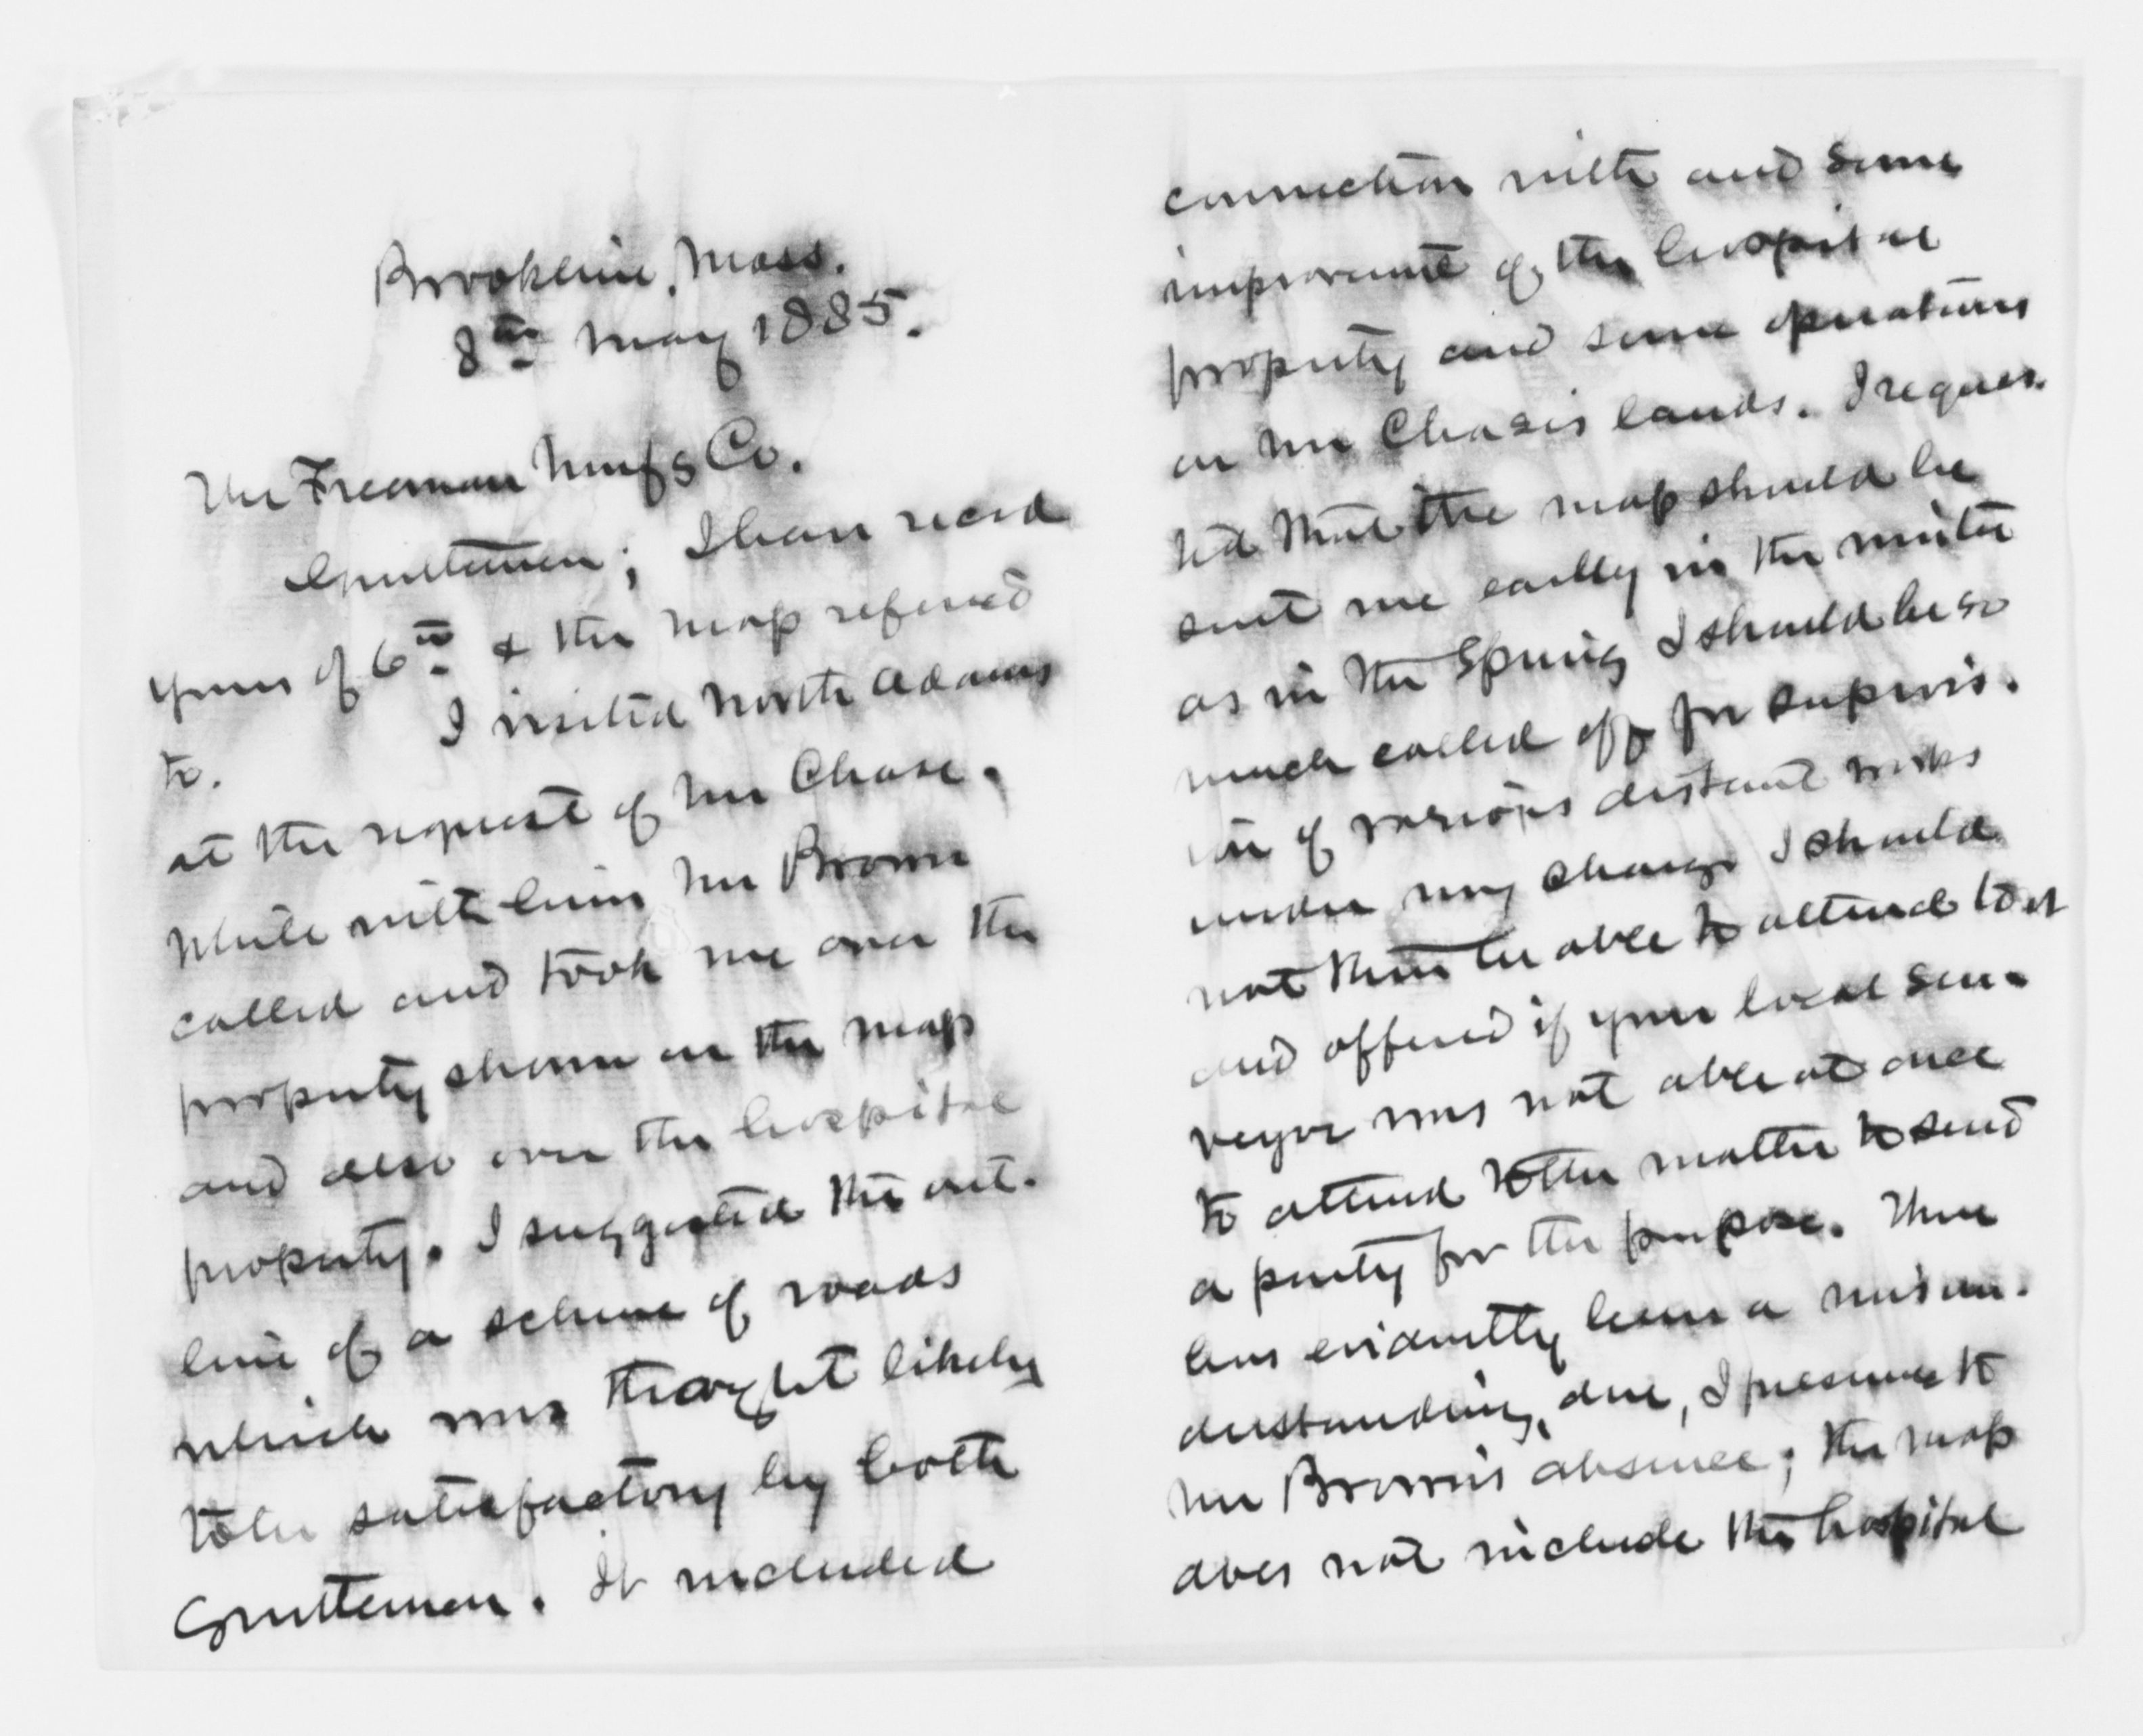 Brookline, Mass.
8th May 1885.
The Freeman Manfg Co.
Gentlemen; I have recd
yours of 6th & the map referred
to.
I visited North Adams
at the request of Mr Chase.
While with him Mr Brown
called and took me over the
property shown on the map
and also over the hospital
property. I suggested the out-
line of a scheme of roads
which was thought likely
to be satisfactory by both
Gentlemen. It included
connection with and some
improvement of the hospital
property and some operations
on Mr Chase's lands. I reques-
ted that the map should be
sent me early in the winter
as in the Spring I should be so
much called off for supervis-
ion of various distant works
under my charge I should
not then be able to attend to it
and offered if your local sur-
veyor was not able at once
to attend to the matter to send
a party for the purpose. There
has evidently been a misun-
derstanding, due, I presume to
Mr Brown's absence; the map
does not include the hospital